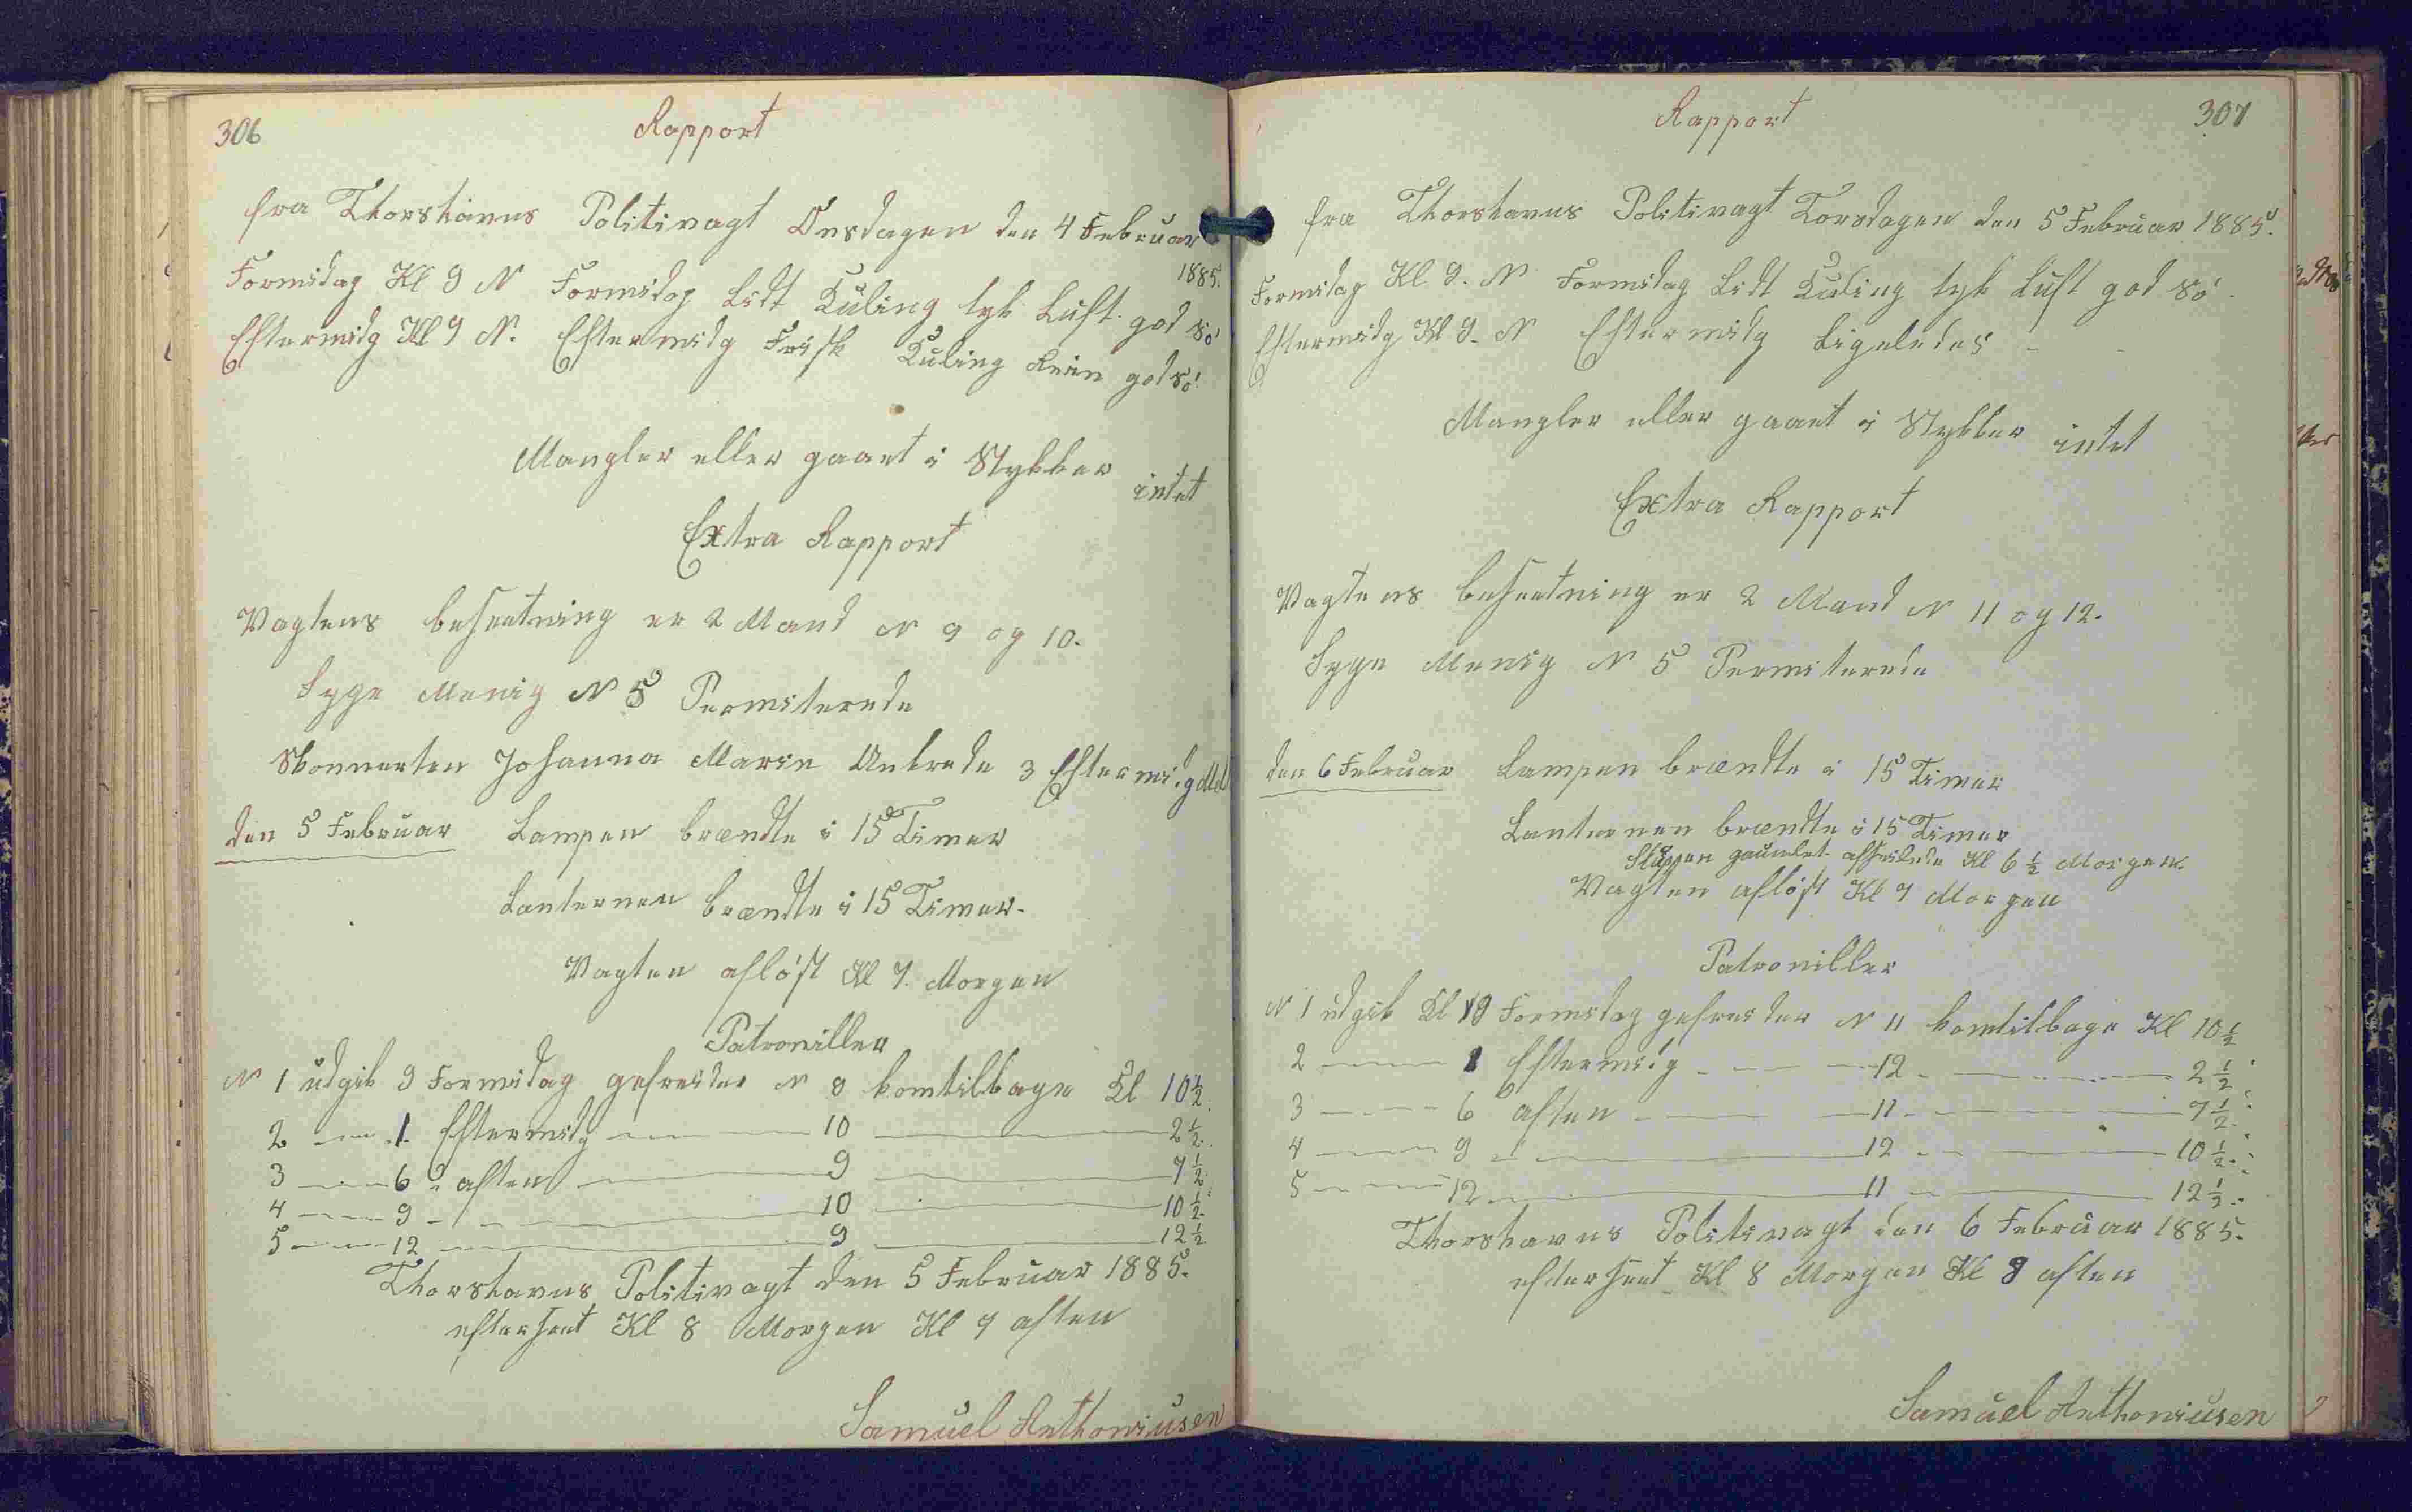 306
Rapport
fra Thorshavns Politivagt Onsdagen den 4 Februar
1885.
Formidag Kl 9 N Formidag Lidt Kuling tyk Luft god Sö
Eftermidg Kl 9 N. Eftermidg Frisk Kuling Rein god Sö.
Mangler eller gaaet i Stykker intet
Extra Rapport
Vagtens besætning er 2 Mand N 9 og 10.
Syge Menig N 5 Permiterede
Skonnerten Johanna Marie Ankrede 3 Eftermidg
den 5 Februar Lampen brændte i 15 Timer
Lanternen brændte i 15 Timer.
Vagten aflöst Kl 7. Morgen
Patroviller
N 1 udgik 9 Formidag gefreider N 9 komtilbage Kl 10 1/2.
2 — 1 Eftermidg — 10 — 2 1/2.
3 — 6 aften — 9 — 7 1/2.
4 — 9 — 10 — 10 1/2.
5 — 12 — 9 — 12 1/2.
Thorshavns Politivagt den 5 Februar 1885.
efterseet Kl 8 Morgen Kl 9 aften
Samuel Anthoniusen
Rapport
307
fra Thorshavns Politivagt Torsdagen den 5 Februar 1885.
Formidag Kl 9. N Formidag Lidt Kuling tyk Luft god Sö.
Eftermidg Kl 9. N Eftermidg Ligeledes –
Mangler eller gaaet i Stykker intet
Extra Rapport
Vagtens besætning er 2 Mand N 11 og 12.
Syge Menig N 5 Permiterede
den 6 Februar Lampen brændte i 15 Timer
Lanternen brændte i 15 Timer
Sluppen afseilede Kl 6 1/2 Morgen.
Vagten aflöst Kl 7 Morgen
Patroviller
N 1 udgik Kl 9 Formidag gefreider N 11 komtilbage Kl 10 1/2
2 — 1 Eftermidg — 12 — 2 1/2
3 — 6 aften — 11 — 7 1/2
4 — 9 — 12 — 10 1/2
5 — 12 — 11 — 12 1/2
Thorshavns Politivagt den 6 Februar 1885.
efterseet Kl 8 Morgen Kl 9 aften
Samuel Anthoniusen